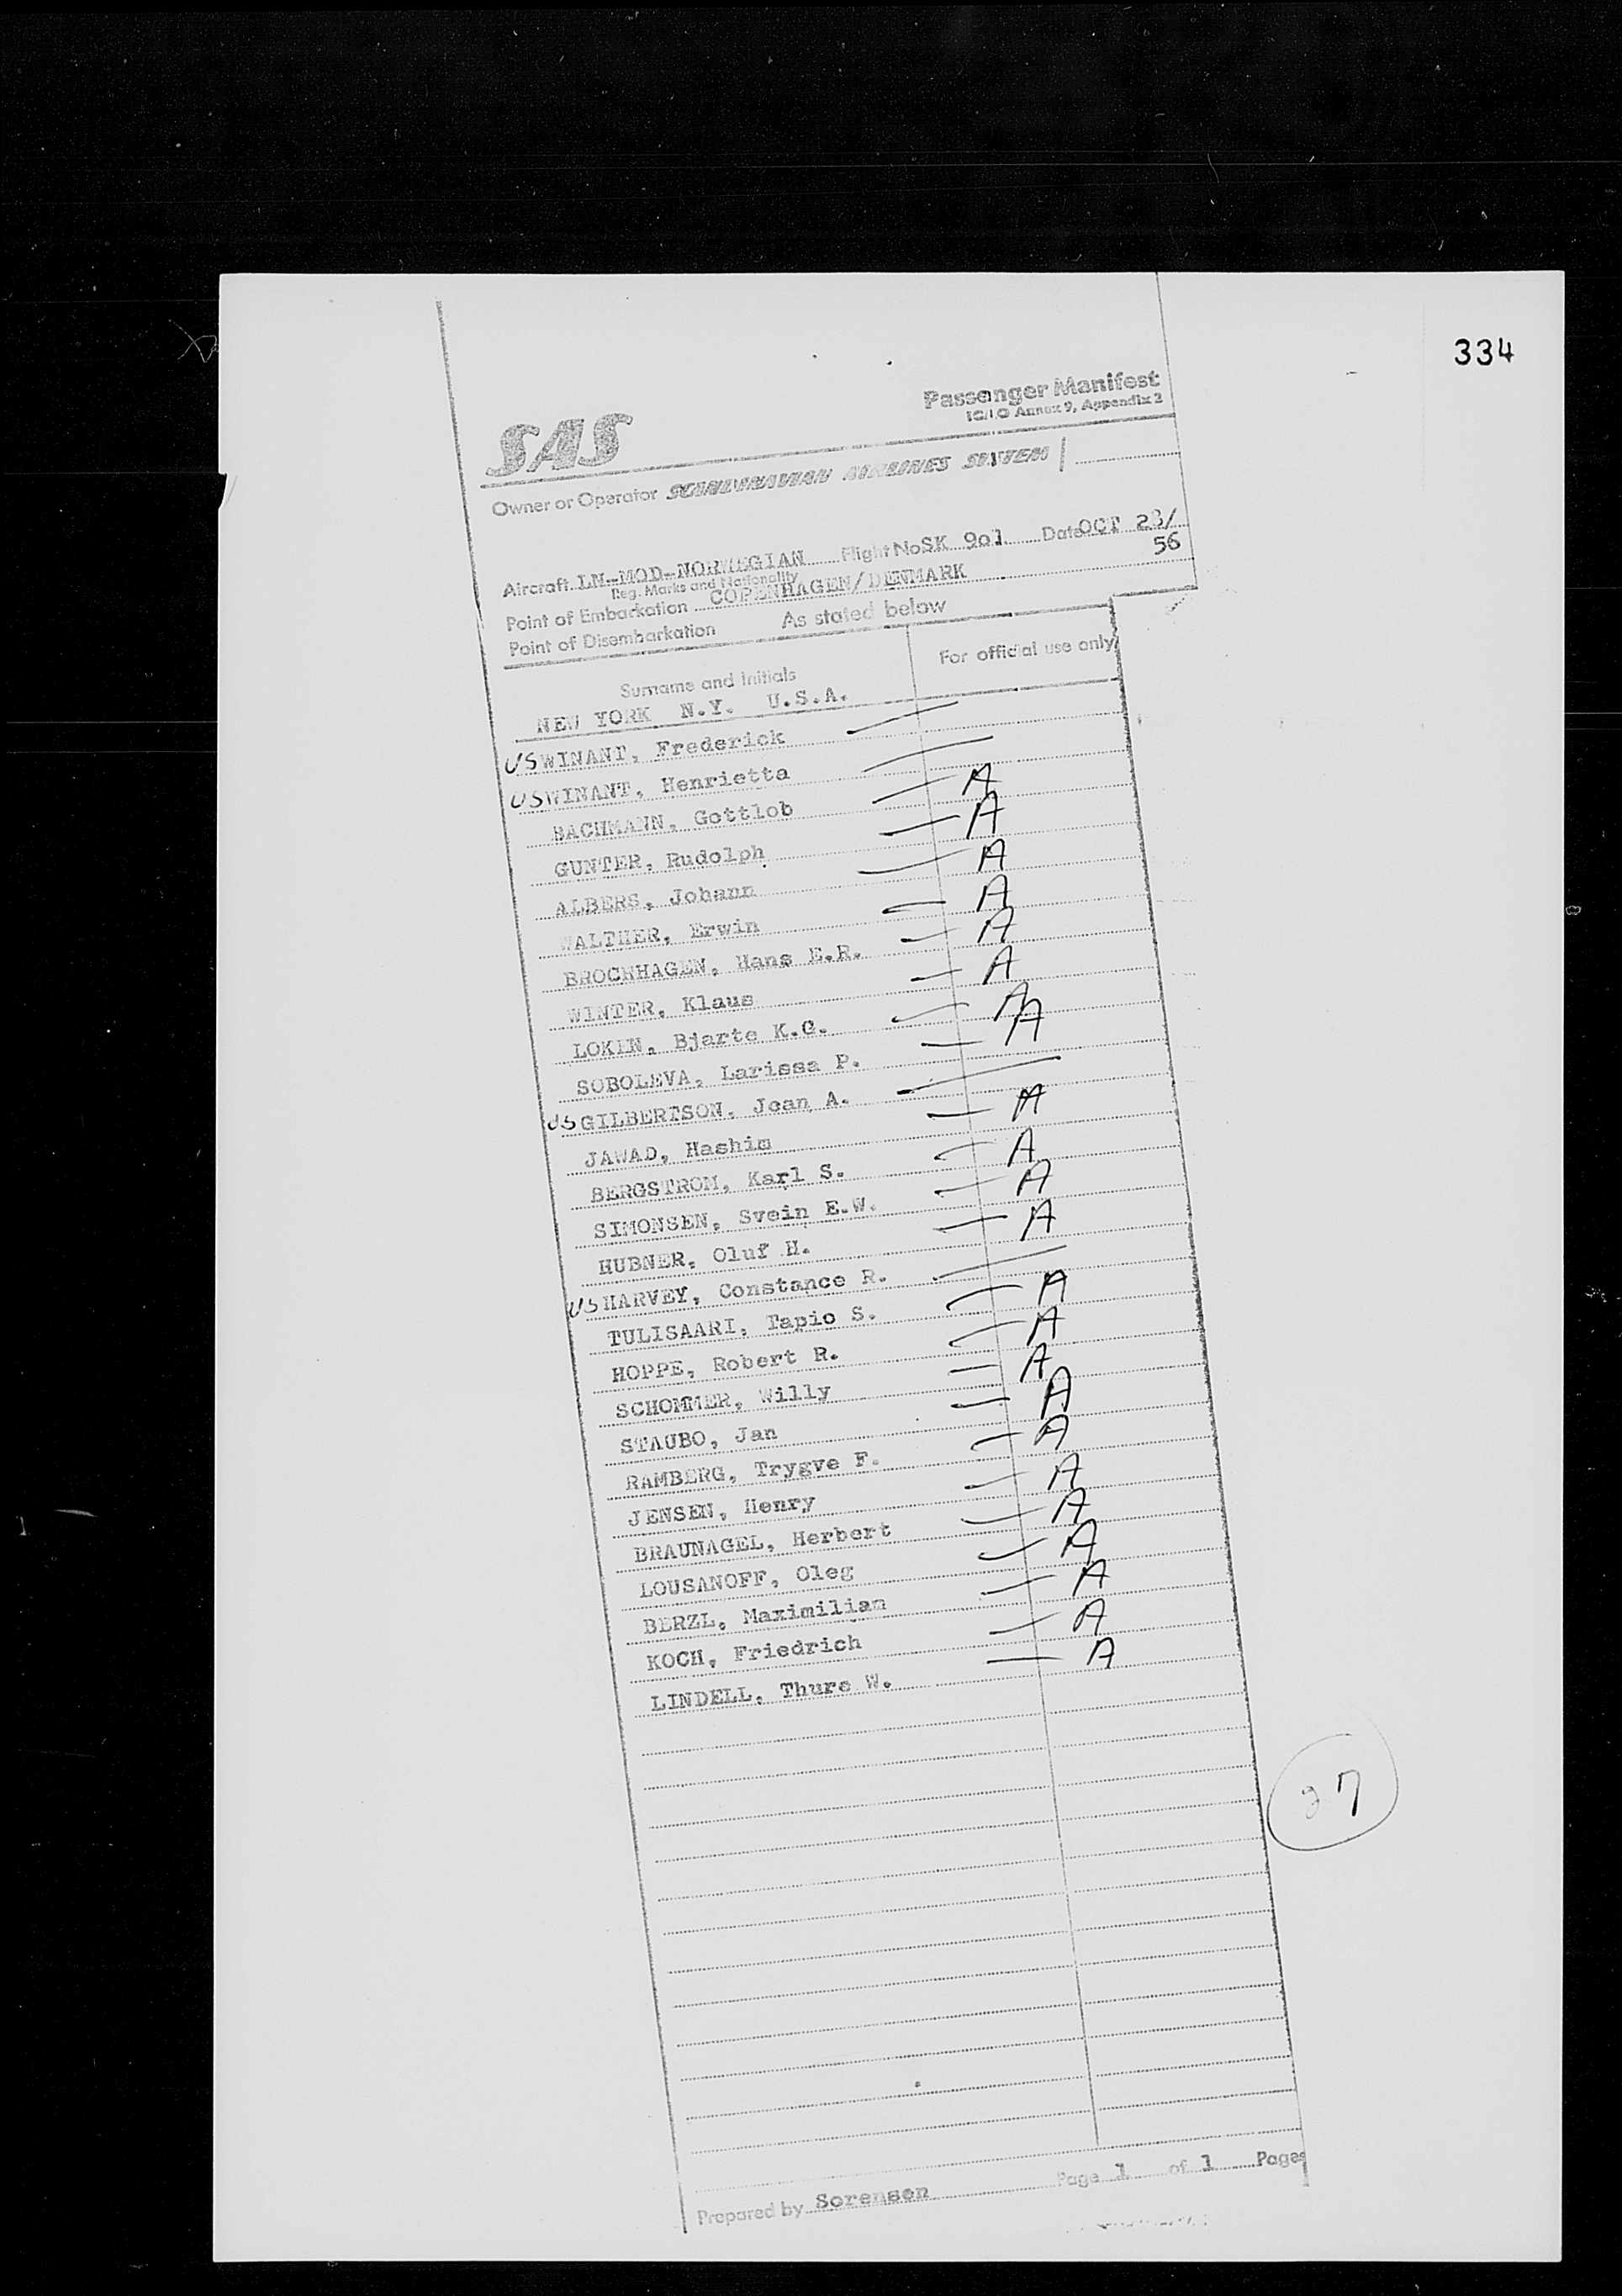 334
Passenger Manifest
ICAO Annex 9, Appendix 2
SAS
Owner or Operator SCANDINAVIAN AIRLINES SYSTEM
Aircraft LN-MOD-NORWEGIAN Flight No SK 901 Date OCT 28/
56
Reg. Marks and Nationality
Point of Embarkation COPENHAGEN/DENMARK
Point of Disembarkation As stated below
Surname and Initials For official use only
NEW YORK N.Y. U.S.A.
US WINANT, Frederick
US WINANT, Henrietta
BACHMANN, Gottlob A
GUNTER, Rudolph A
ALBERS, Johann A
WALTHER, Erwin A
BROCKHAGEN, Hans E.R. A
WINTER, Klaus A
LOKEN, Bjarte K.G. A
SOBOLEVA, Larissa P. A
US GILBERTSON, Jean A.
JAWAD, Hashim A
BERGSTROM, Karl S. A
SIMONSEN, Svein E.W. A
HUBNER, Oluf H. A
US HARVEY, Constance R.
TULISAARI, Tapio S. A
HOPPE, Robert R. A
SCHOMMER, Willy A
STAUBO, Jan A
RAMBERG, Trygve F. A
JENSEN, Henry A
BRAUNAGEL, Herbert A
LOUSANOFF, Oleg A
BERZL, Maximilian A
KOCH, Friedrich A
LINDELL, Thure W. A
27
Prepared by Sorensen Page 1 of 1 Pages